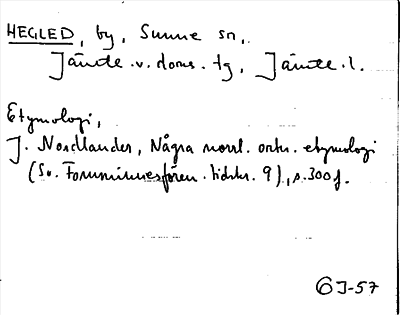 HEGLED, by, Sunne sn,
Jämte.v.doms.tg, Jämtl.l.
Etymologi,
J. Nordlander, Några norrl. ortn. etymologi
(Sv. Fornminnesfören. tidskr. 9), s. 300f.
6J-57